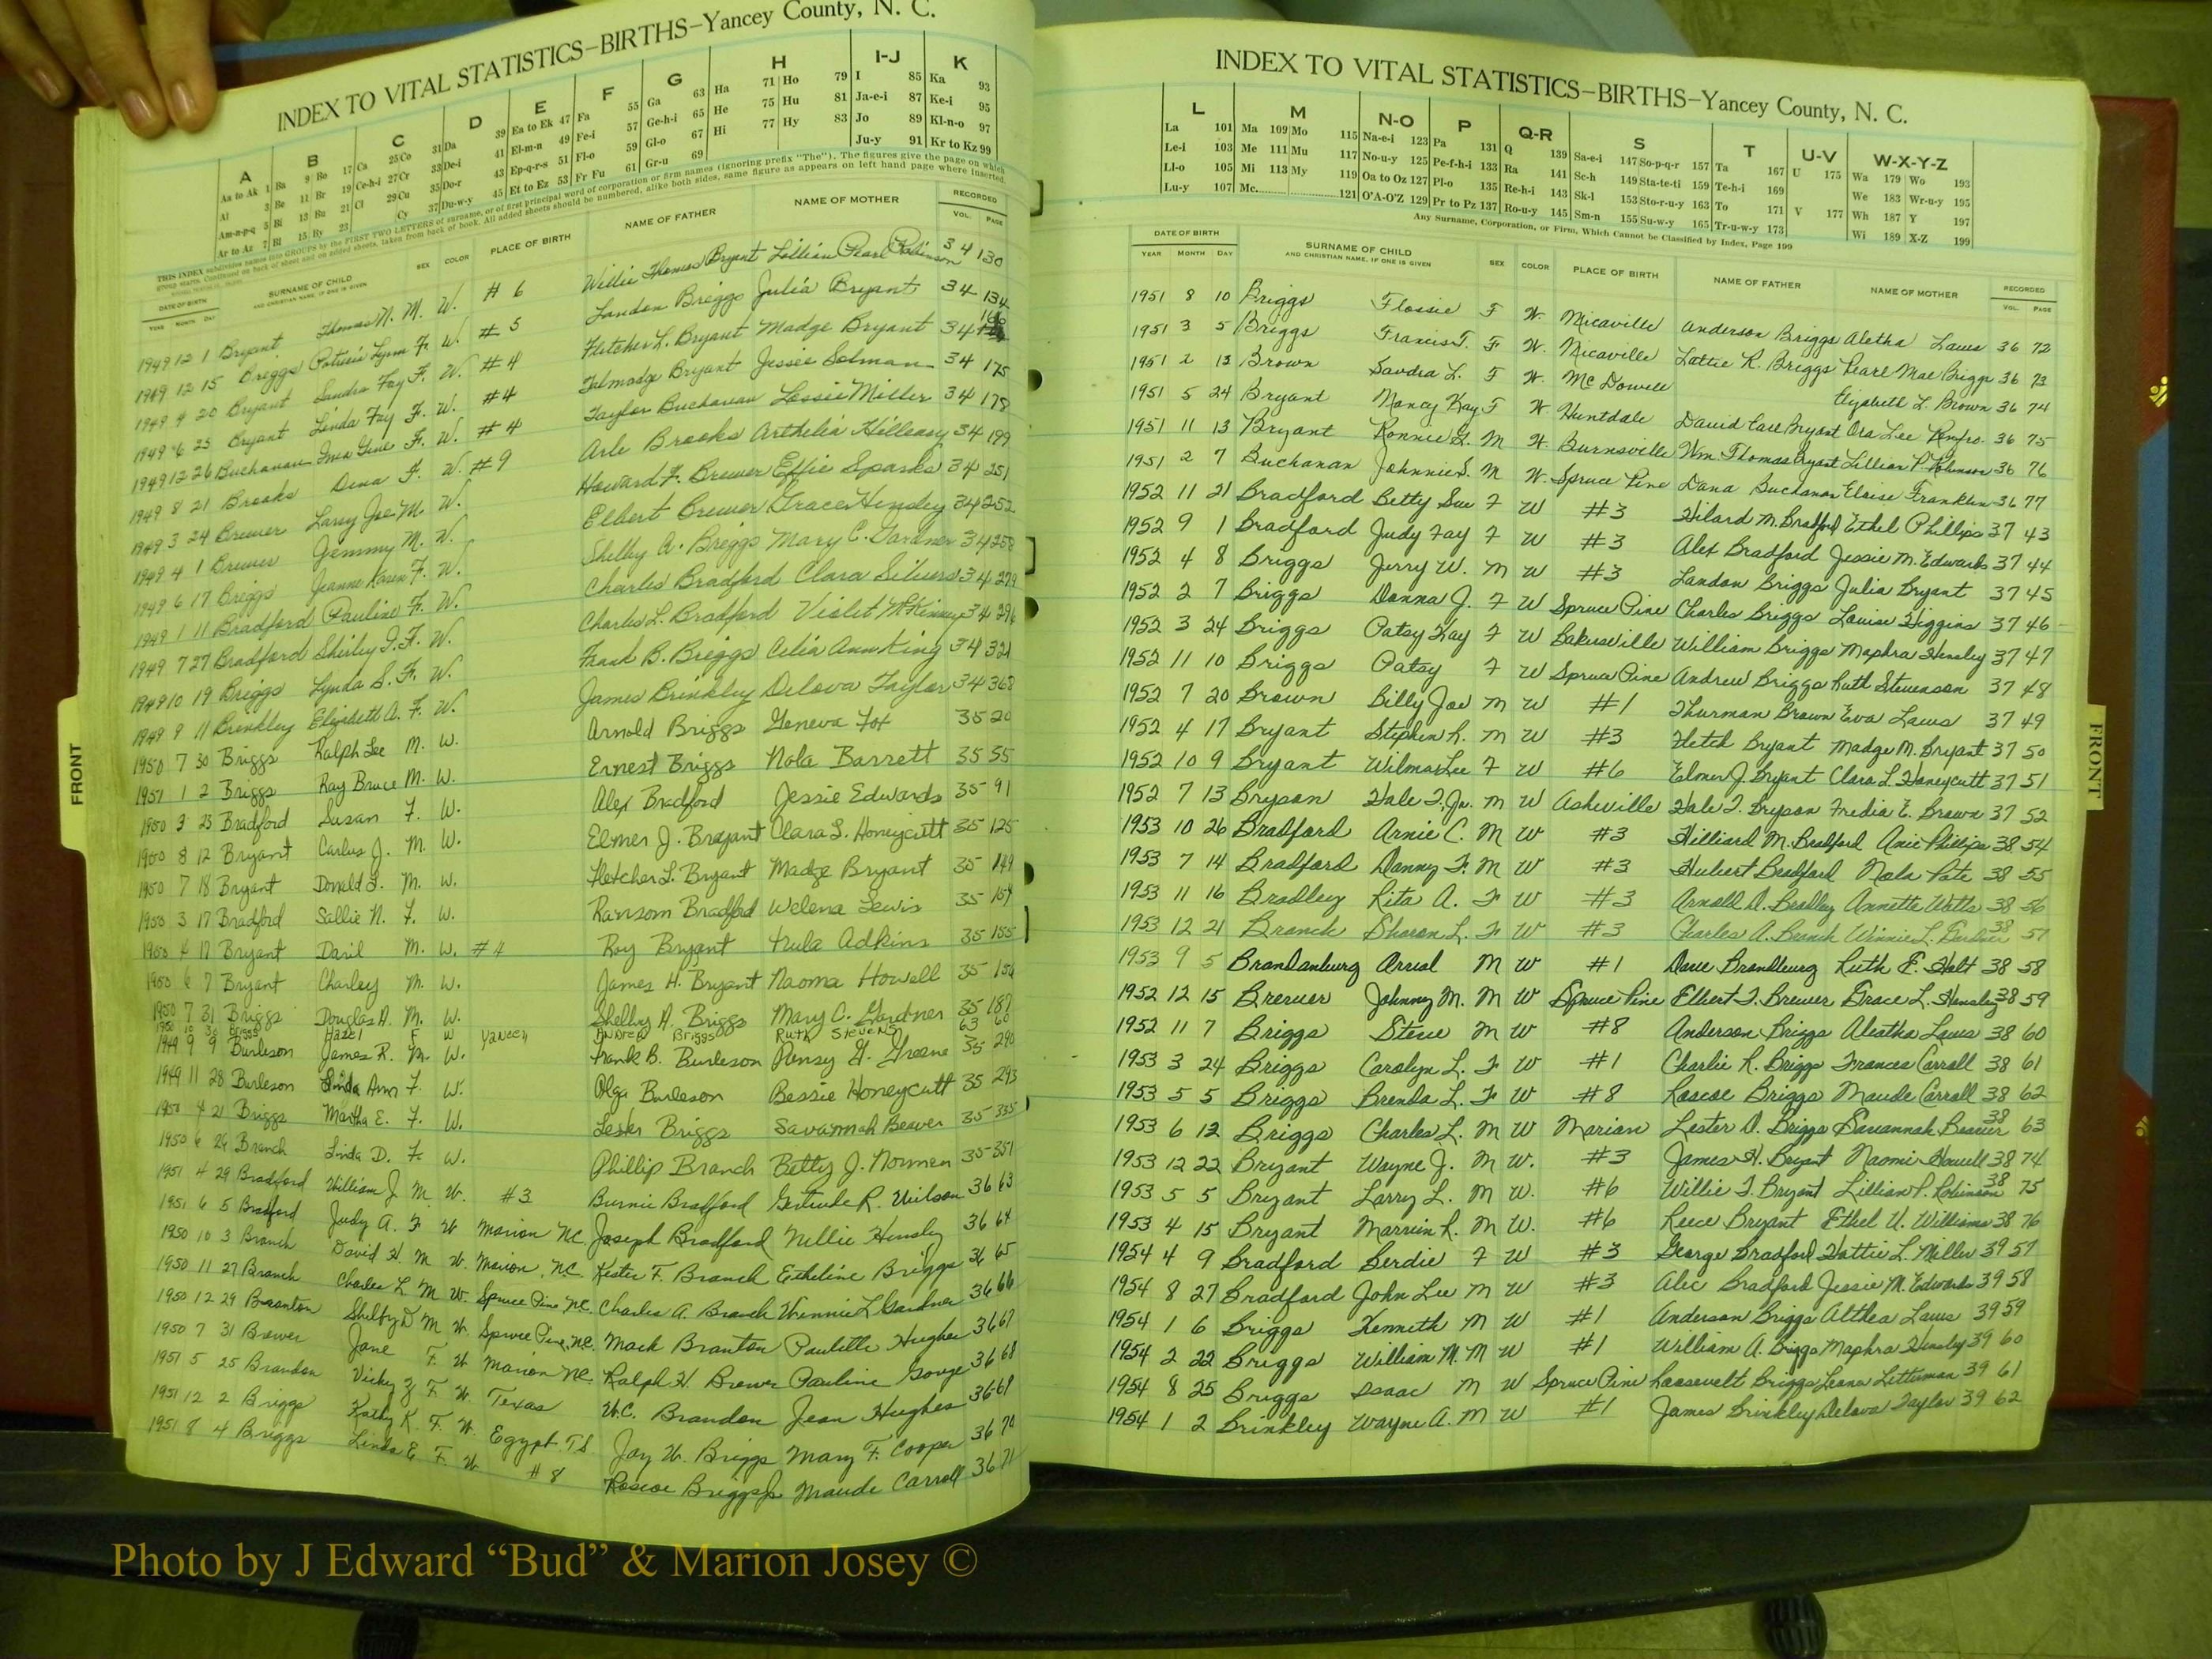 INDEX TO VITAL STATISTICS–BIRTHS–Yancey County, N. C.
A B C D E F G H I-J K
Aa to Ak 1 Ba 9 Bo 17 Ca 25 Co 31 Da 39 Ea to Ek 47 Fa 55 Ga 63 Ha 71 Ho 79 I 85 Ka 93
Al 3 Be 11 Br 19 Ce-h-i 27 Cr 33 De-i 41 El-m-n 49 Fe-i 57 Ge-h-i 65 He 75 Hu 81 Ja-e-i 87 Ke-i 95
Am-n-p-q 5 Bi 13 Bu 21 Cl 29 Cu 35 Do-r 43 Ep-q-r-s 51 Fl-o 59 Gl-o 67 Hi 77 Hy 83 Jo 89 Kl-n-o 97
Ar to Az 7 Bl 15 By 23 Cy 37 Du-w-y 45 Et to Ez 53 Fr Fu 61 Gr-u 69 Ju-y 91 Kr to Kz 99
THIS INDEX subdivides names into GROUPS by the FIRST TWO LETTERS of surname, or of first principal word of corporation or firm names (ignoring prefix "The"). The figures give the page on which
group starts. Continued on back of sheet and on added sheets, taken from back of book. All added sheets should be numbered, alike both sides, same figure as appears on left hand page where inserted.
DATE OF BIRTH SURNAME OF CHILD SEX COLOR PLACE OF BIRTH NAME OF FATHER NAME OF MOTHER RECORDED
YEAR MONTH DAY AND CHRISTIAN NAME, IF ONE IS GIVEN VOL. PAGE
1949 12 1 Bryant Thomas N. M. W. #6 Willie Thomas Bryant Lillian Pearl Robinson 34 130
1949 12 15 Briggs Patricia Lynn F. W. #5 Landon Briggs Julia Bryant 34 134
1949 4 20 Bryant Sandra Fay F. W. #4 Fletcher L. Bryant Madge Bryant 34
1949 6 25 Bryant Linda Fay F. W. #4 Talmadge Bryant Jessie Solman 34 175
1949 12 26 Buchanan Gene F. W. #4 Taylor Buchanan Lassie Miller 34 178
1949 8 21 Brooks Dena F. W. #9 Arle Brooks Arthelia 34 199
1949 3 24 Brewer Larry Joe M. W. Howard F. Brewer Effie Sparks 34 251
1949 4 1 Brewer Jemmy M. W. Elbert Brewer Grace Hensley 34 252
1949 6 17 Briggs Jeanne Karen F. W. Shelby A. Briggs Mary C. Gardner 34 258
1949 1 11 Bradford Pauline F. W. Charles Bradford Clara Silvers 34 279
1949 7 27 Bradford Shirley I. F. W. Charles L. Bradford Violet McKinney 34 296
1949 10 19 Briggs Lynda S. F. W. Frank B. Briggs Celia Ann King 34 321
1949 9 11 Brinkley Elizabeth A. F. W. James Brinkley Delova Taylor 34 368
1950 7 30 Briggs Ralph Lee M. W. Arnold Briggs Geneva Fox 35 20
1951 1 2 Briggs Ray Bruce M. W. Ernest Briggs Nola Barrett 35 55
1950 3 25 Bradford Susan F. W. Alex Bradford Jessie Edwards 35 91
1950 8 12 Bryant Carlus J. M. W. Elmer J. Bryant Clara L. Honeycutt 35 125
1950 7 18 Bryant Donald L. M. W. Fletcher L. Bryant Madge Bryant 35 149
1950 3 17 Bradford Sallie N. F. W. Ransom Bradford Welena Lewis 35 154
1950 4 17 Bryant Daril M. W. #4 Roy Bryant Trula Adkins 35 155
1950 6 7 Bryant Charley M. W. James H. Bryant Naoma Howell 35 156
1950 7 31 Briggs Douglas A. M. W. Shelby A. Briggs Mary C. Gardner 35 187
1950 10 30 Briggs Hazel F W Yancey Andrew Briggs Ruth Stevens 63 60
1949 9 9 Burleson James R. M. W. Frank B. Burleson Pansy G. Greene 35 290
1949 11 28 Burleson Linda Ann F. W. Olga Burleson Bessie Honeycutt 35 293
1950 4 21 Briggs Martha E. F. W. Lester Briggs Savannah Beaver 35 335
1950 6 26 Branch Linda D. F. W. Phillip Branch Betty J. Norman 35 351
1951 4 29 Bradford William J. M. W. #3 Burnie Bradford Gertrude R. Wilson 36 63
1951 6 5 Bradford Judy A. F W Marion N.C. Joseph Bradford Nellie Hensley 36 64
1950 10 3 Branch David H. M W. Marion, N.C. Kester F. Branch Etheline Briggs 36 65
1950 11 27 Branch Charles L M W. Spruce Pine N.C. Charles A. Branch Winnie L. Gardner 36 66
1950 12 29 Branton Shelby D M W. Spruce Pine, N.C. Mack Branton Paulette Hughes 36 67
1950 7 31 Brewer Jane F. W Marion N.C. Ralph H. Brewer Pauline Gouge 36 68
1951 5 25 Brandon Vicky Z F. W. Texas W.C. Brandon Jean Hughes 36 69
1951 12 2 Briggs Kathy K. F. W. Egypt T.S. Jay W. Briggs Mary F. Cooper 36 70
1951 8 4 Briggs Linda E F. W. #8 Roscoe Briggs Jr. Maude Carroll 36 71
FRONT
INDEX TO VITAL STATISTICS–BIRTHS–Yancey County, N. C.
L M N-O P Q-R S T U-V W-X-Y-Z
La 101 Ma 109 Mo 115 Na-e-i 123 Pa 131 Q 139 Sa-e-i 147 So-p-q-r 157 Ta 167 U 175 Wa 179 Wo 193
Le-i 103 Me 111 Mu 117 No-u-y 125 Pe-f-h-i 133 Ra 141 Sc-h 149 Sta-te-ti 159 Te-h-i 169 We 183 Wr-u-y 195
Ll-o 105 Mi 113 My 119 Oa to Oz 127 Pl-o 135 Re-h-i 143 Sk-l 153 Sto-r-u-y 163 To 171 V 177 Wh 187 Y 197
Lu-y 107 Mc 121 O'A-O'Z 129 Pr to Pz 137 Ro-u-y 145 Sm-n 155 Su-w-y 165 Tr-u-w-y 173 Wi 189 X-Z 199
Any Surname, Corporation, or Firm, Which Cannot be Classified by Index, Page 199
DATE OF BIRTH SURNAME OF CHILD SEX COLOR PLACE OF BIRTH NAME OF FATHER NAME OF MOTHER RECORDED
YEAR MONTH DAY AND CHRISTIAN NAME, IF ONE IS GIVEN VOL. PAGE
1951 8 10 Briggs Flossie F W. Micaville Anderson Briggs Aletha Laws 36 72
1951 3 5 Briggs Francis T. F W. Micaville Lattie R. Briggs Pearl Mae Briggs 36 73
1951 2 13 Brown Sandra L. F W. McDowell Elizabeth L. Brown 36 74
1951 5 24 Bryant Nancy Kay F W. Huntdale David Earl Bryant Ora Lee Renfro. 36 75
1951 11 13 Bryant Ronnie G. M W. Burnsville Wm. Thomas Bryant Lillian P. Robinson 36 76
1951 2 7 Buchanan Johnnie S. M W. Spruce Pine Dana Buchanan Eloise Franklin 36 77
1952 11 21 Bradford Betty Sue F W #3 Hilard M. Bradford Ethel Phillips 37 43
1952 9 1 Bradford Judy Fay F W #3 Alex Bradford Jessie M. Edwards 37 44
1952 4 8 Briggs Jerry W. M W #3 Landon Briggs Julia Bryant 37 45
1952 2 7 Briggs Donna J. F W Spruce Pine Charles Briggs Louise Higgins 37 46
1952 3 24 Briggs Patsy Kay F W Bakersville William Briggs Maphra Hensley 37 47
1952 11 10 Briggs Patsy F W Spruce Pine Andrew Briggs Ruth Stevenson 37 48
1952 7 20 Brown Billy Joe M W #1 Thurman Brown Eva Laws 37 49
1952 4 17 Bryant Stephen R. M W #3 Fletch Bryant Madge M. Bryant 37 50
1952 10 9 Bryant Wilma Lee F W #6 Elmer J. Bryant Clara L. Honeycutt 37 51
1952 7 13 Bryson Hale T. Jr. M W Asheville Hale T. Bryson Fredia E. Brown 37 52
1953 10 26 Bradford Arnie C. M W #3 Hilliard M. Bradford Phillips 38 54
1953 7 14 Bradford Danny F. M W #3 Hubert Bradford Nola Pate 38 55
1953 11 16 Bradley Rita A. F W #3 Arnold D. Bradley Annette Watts 38 56
1953 12 21 Branch Sharon L. F W #3 Charles A. Branch Winnie L. Gardner 38 57
1953 9 5 Brandanburg Arval M W #1 Dave Brandburg Ruth E. Holt 38 58
1952 12 15 Brewer Johnny M. M W Spruce Pine Elbert T. Brewer Grace L. Hensley 38 59
1952 11 7 Briggs Steve M W #8 Anderson Briggs Aleatha Laws 38 60
1953 3 24 Briggs Carolyn L. F W #1 Charlie R. Briggs Frances Carroll 38 61
1953 5 5 Briggs Brenda L. F W #8 Roscoe Briggs Maude Carroll 38 62
1953 6 12 Briggs Charles L. M W Marion Lester D. Briggs Savannah Beaver 38 63
1953 12 22 Bryant Wayne J. M W. #3 James H. Bryant Naomi Howell 38 74
1953 5 5 Bryant Larry L. M W. #6 Willie T. Bryant Lillian P. Robinson 38 75
1953 4 15 Bryant Marvin R. M W. #6 Reece Bryant Ethel U. Williams 38 76
1954 4 9 Bradford Berdie F W #3 George Bradford Hattie L. Miller 39 57
1954 8 27 Bradford John Lee M W #3 Alec Bradford Jessie M. Edwards 39 58
1954 1 6 Briggs Kenneth M W #1 Anderson Briggs Althea Laws 39 59
1954 2 22 Briggs William M. M W #1 William A. Briggs Maphra Hensley 39 60
1954 8 25 Briggs Isaac M W Spruce Pine Roosevelt Briggs Leona Letterman 39 61
1954 1 2 Brinkley Wayne A. M W #1 James Brinkley Delova Taylor 39 62
FRONT
Photo by J Edward “Bud” & Marion Josey ©